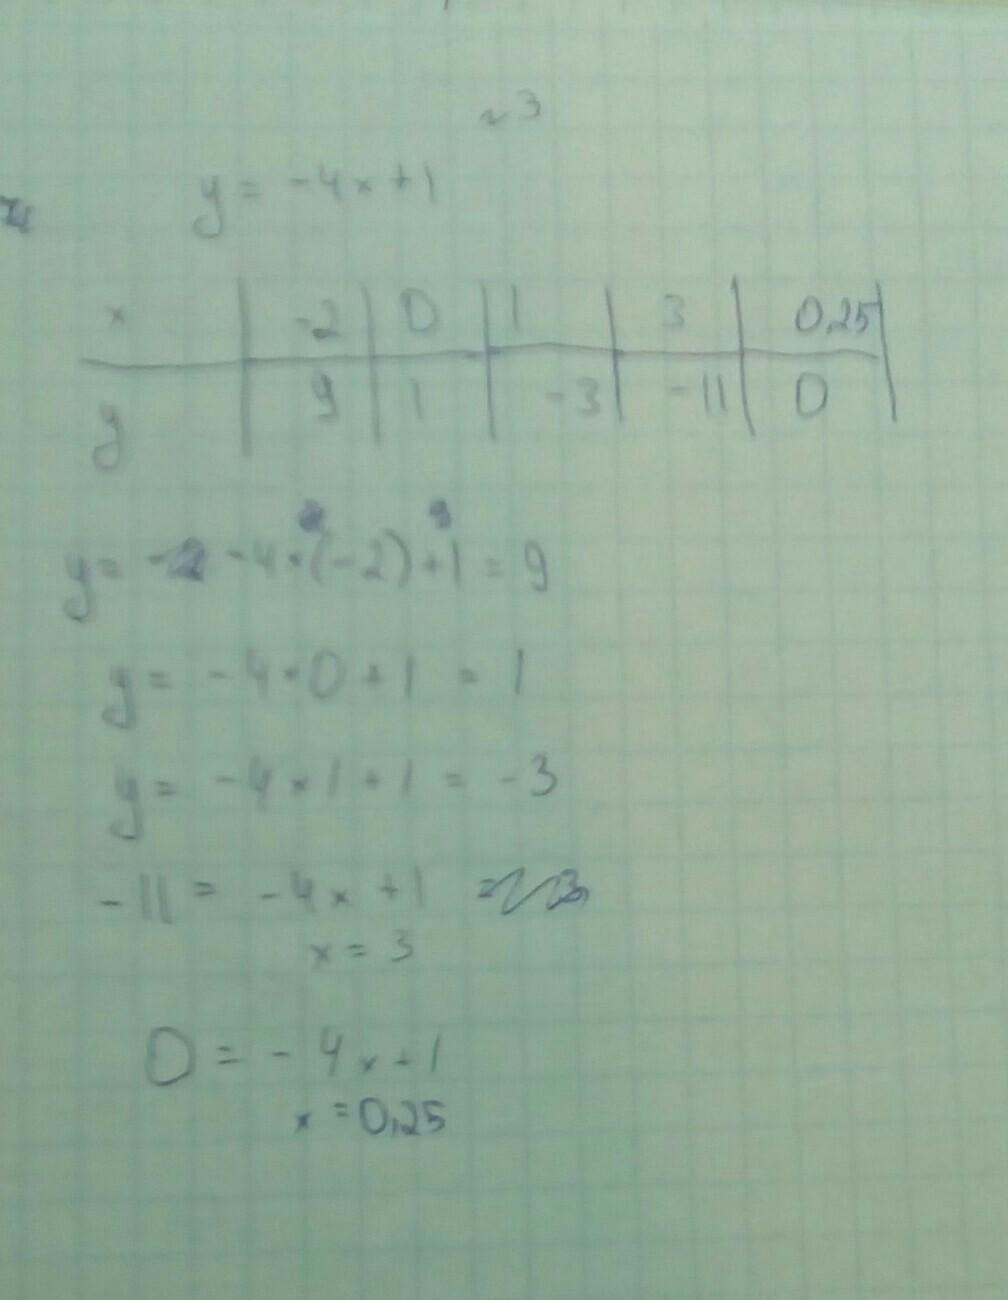 ~3
y = -4x +1
x | -2 | 0 | 1 | 3 | 0,25
y | 9 | 1 | -3 | -11 | 0
y = -4·(-2)+1 = 9
y = -4·0 +1 = 1
y = -4×1+1 = -3
-11 = -4x +1
x = 3
0 = -4x-1
x = 0,25